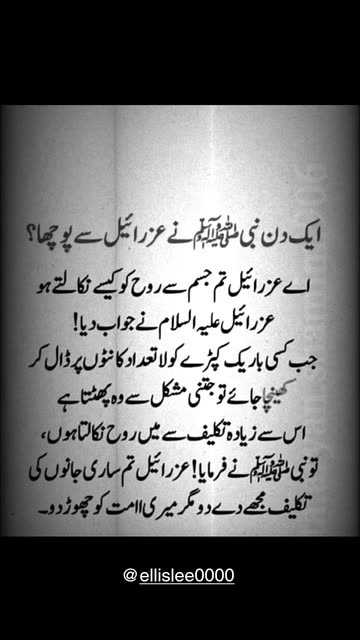 ایک دن نبی ﷺ نے عزرائیل سے پوچھا؟
اے عزرائیل تم جسم سے روح کو کیسے نکالتے ہو
عزرائیل علیہ السلام نے جواب دیا!
جب کسی باریک کپڑے کو لا تعداد کانٹوں پر ڈال کر
کھینچا جائے تو جتنی مشکل سے وہ پھٹتا ہے
اس سے زیادہ تکلیف سے میں روح نکالتا ہوں،
تو نبی ﷺ نے فرمایا! عزرائیل تم ساری جانوں کی
تکلیف مجھے دے دو مگر میری اامت کو چھوڑ دو۔
@ellislee0000